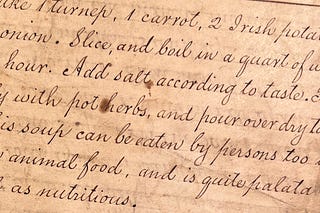 ake 1 turnep, 1 carrot, 2 Irish pota
onion. Slice, and boil in a quart of
hour. Add salt, according to taste.
with pot herbs, and pour over dry to
is soup can be eaten by persons too
animal food, and is quite palata
as nutritious.